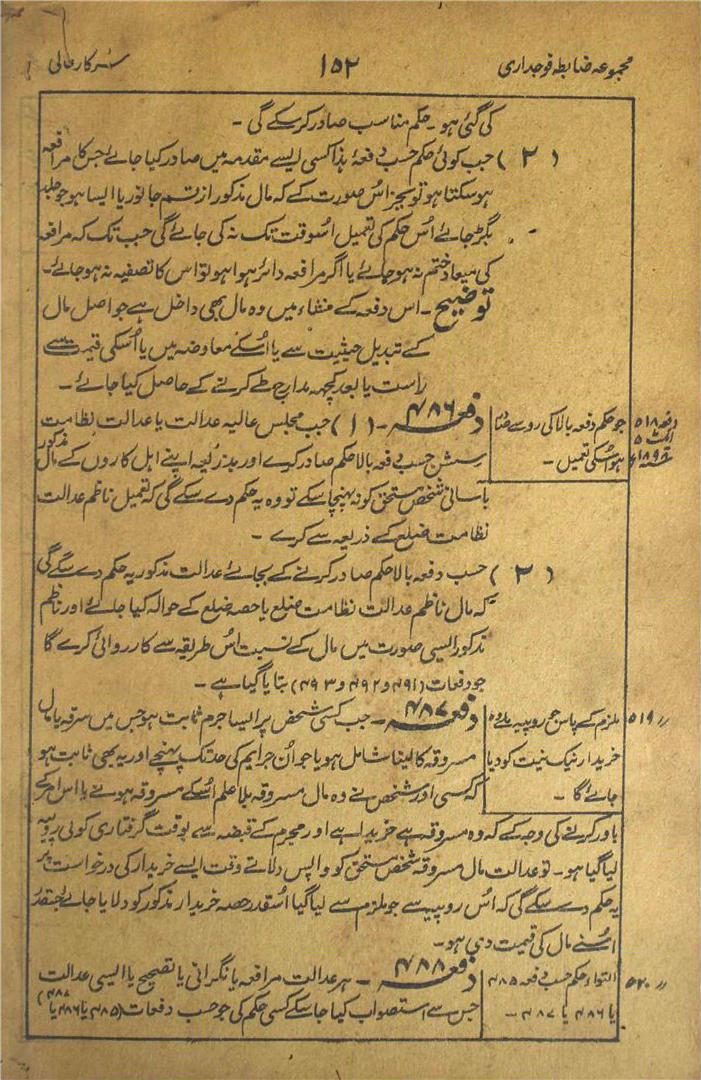 مجموعہ ضابطہ فوجداری
۱۵۲
سرکار عالی
کی گئی ہو۔ حکم مناسب صادر کر سکے گی۔
(۲) جب کوئی حکم حسب دفعۂ ہذا کسی ایسے مقدمہ میں صادر کیا جائے جس کا مرافعہ
ہو سکتا ہو تو بجز اس صورت کے کہ مال مذکور از قسم جانور یا ایسا ہو جو جلد
بگڑ جائے اُس حکم کی تعمیل اُسوقت تک نہ کی جائے گی جب تک کہ مرافعہ
کی میعاد ختم نہ ہو جائے یا اگر مرافعہ دائر ہوا ہو تو اس کا تصفیہ نہ ہو جائے۔
توضیح۔ اس دفعہ کے منشاء میں وہ مال بھی داخل ہے جو اصل مال
کے تبدیل حیثیت سے یا اُسکے معاوضہ میں یا اُسکی قیمت سے
راست یا بعد کچھ مدارج طے کرنے کے حاصل کیا جائے۔
دفعہ ۴۸۶۔ (۱) جب مجلس عالیہ عدالت یا عدالت نظامت
سشن حسب دفعہ بالا حکم صادر کرے اور بذریعہ اپنے اہل کاروں کے مال مذکور
بآسانی شخص مستحق کو نہ پہنچا سکے تو وہ یہ حکم دے سکے گی کہ تعمیل ناظم عدالت
نظامت ضلع کے ذریعہ سے کرے۔
جو حکم دفعہ بالا کی رو سے صادر
ہو اُسکی تعمیل۔
دفعہ ۵۱۸
ایکٹ ۵
۱۸۹۸ء
(۲) حسب دفعہ بالا حکم صادر کرنے کے بجائے عدالت مذکور یہ حکم دے سکے گی
کہ مال ناظم عدالت نظامت ضلع یا حصہ ضلع کے حوالہ کیا جائے اور ناظم
مذکور ایسی صورت میں مال کے نسبت اُس طریقہ سے کارروائی کرے گا
جو دفعات (۴۹۱ و ۴۹۲ و ۴۹۳) بتایا گیا ہے۔
دفعہ ۴۸۷۔ جب کسی شخص پر ایسا جرم ثابت ہو جس میں سرقہ یا مال
مسروقہ کا لینا شامل ہو یا جو اُن جرایم کی حد تک پہنچے اور یہ بھی ثابت ہو
کہ کسی اور شخص نے وہ مال مسروقہ بلا علم اُسکے مسروقہ ہونے یا اس امر کے
ملزم کے پاس جو روپیہ ملے وہ
خریدار نیک نیت کو دیا
جائے گا۔
〃 ۵۱۹
باور کرنے کی وجہ کے کہ وہ مسروقہ ہے خریدا ہے اور مجرم کے قبضہ سے بوقت گرفتاری کوئی روپیہ
لیا گیا ہو۔ تو عدالت مال مسروقہ شخص مستحق کو واپس دلاتے وقت ایسے خریدار کی درخواست پر
یہ حکم دے سکے گی کہ اُس روپیہ سے جو ملزم سے لیا گیا اُسقدر حصہ خریدار مذکور کو دلایا جائے جسقدر
اُسنے مال کی قیمت دی ہو۔
دفعہ ۴۸۸۔ ہر عدالت مرافعہ یا نگرانی یا تصحیح یا ایسی عدالت
جس سے استصواب کیا جا سکے کسی حکم کی جو حسب دفعات (۴۸۵ یا ۴۸۶ یا ۴۸۷)
التواء حکم حسب دفعہ ۴۸۵
یا ۴۸۶ یا ۴۸۷۔
〃 ۵۲۰